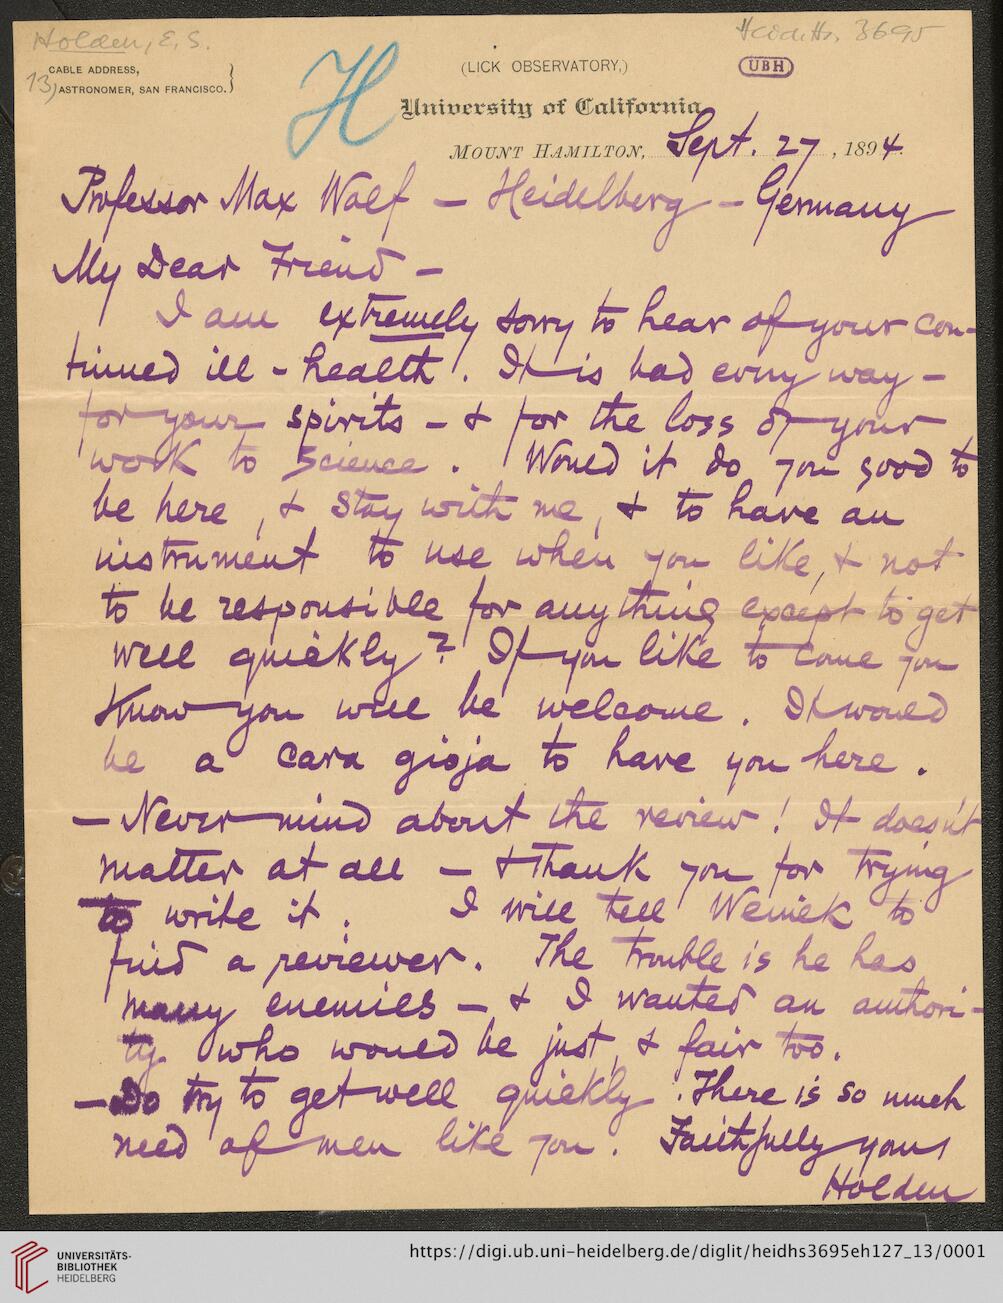 Holden, E. S.
Heid. Hs. 3695
13)
CABLE ADDRESS,
ASTRONOMER, SAN FRANCISCO.}
H
(LICK OBSERVATORY,)
UBH
University of California
MOUNT HAMILTON, Sept. 27, 1894.
Professor Max Wolf — Heidelberg — Germany
My Dear Friend —
I am extremely sorry to hear of your con-
tinued ill-health. It is bad every way —
for your spirits — & for the loss of your
work to Science. Would it do you good to
be here, & stay with me, & to have an
instrument to use when you like, & not
to be responsible for anything except to get
well quickly? If you like to come you
know you will be welcome. It would
be a cara gioja to have you here.
— Never mind about the review! It doesn't
matter at all — & thank you for trying
to write it. I will tell Weinek to
find a reviewer. The trouble is he has
many enemies — & I wanted an authori-
ty who would be just, & fair too.
— Do try to get well quickly. There is so much
need of men like you. Faithfully yours
Holden
UNIVERSITÄTS-
BIBLIOTHEK
HEIDELBERG
https://digi.ub.uni-heidelberg.de/diglit/heidhs3695eh127_13/0001